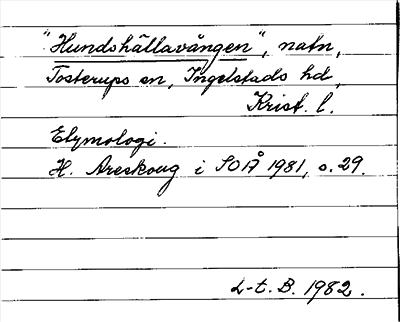 "Hundshällavången", natn,
Tosterups sn, Ingelstads hd,
Krist. l.
Etymologi.
H. Areskoug i SOÅ 1981, s. 29.
L-t. B. 1982.